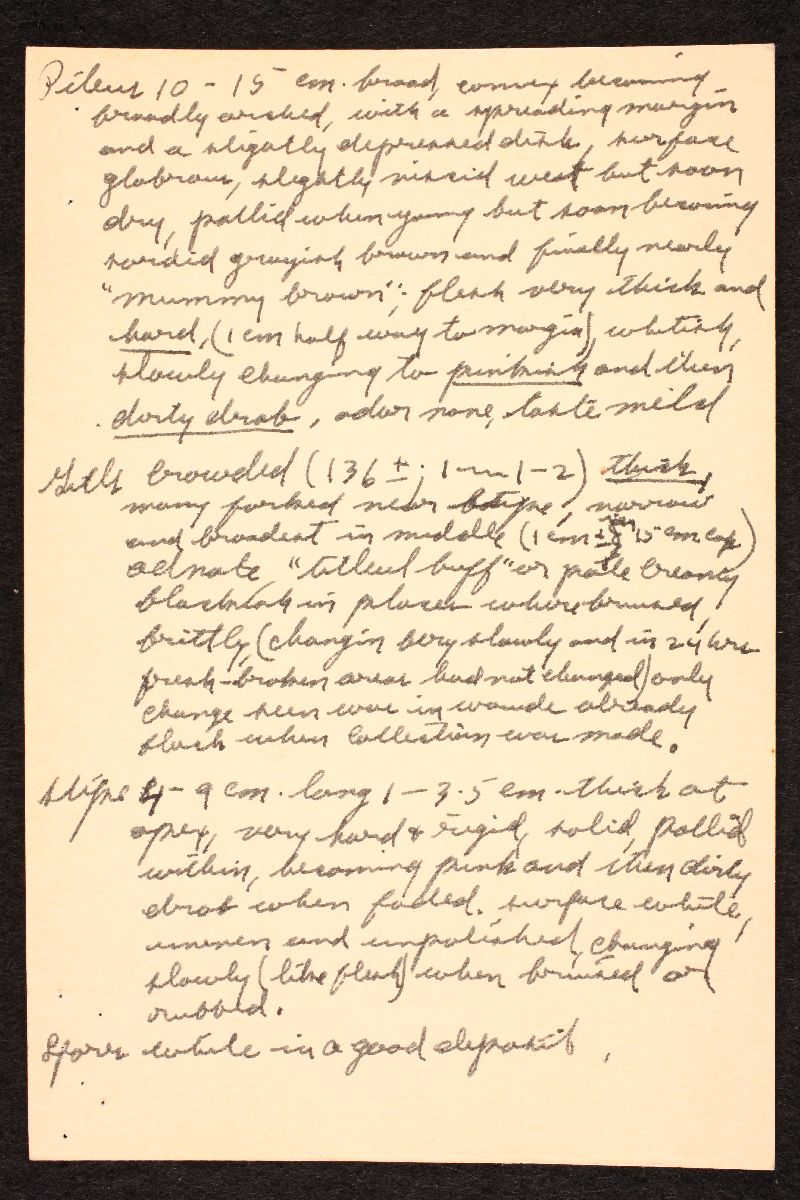 Pileus 10 - 15 cm. broad, convex becoming
broadly arched, with a spreading margin
and a slightly depressed disk, surface
glabrous, slightly viscid wet but soon
dry, pallid when young but soon becoming
sordid grayish brown and finally nearly
"mummy brown"; flesh very thick and
hard, (1 cm half way to margin), whitish,
slowly changing to pinkish and then
dirty drab, odor none, taste mild
Gills crowded (136 ±; 1-2) thick,
many forked near stipe, narrow
and broadest in middle (1 cm ± in 15 cm cap)
adnate, "tilleul buff" or pale creamy
blackish in places where bruised,
brittle, (changin very slowly and in 24 hrs
fresh-broken areas had not changed) only
change seen was in wounds already
black when collection was made.
stipe 4 - 9 cm. long 1 - 3.5 cm. thick at
apex, very hard & rigid, solid, pallid
within, becoming pink and then dirty
drab when faded. surface white,
uneven and unpolished, changing
slowly (like flesh) when bruised or
rubbed.
Spores white in a good deposit.